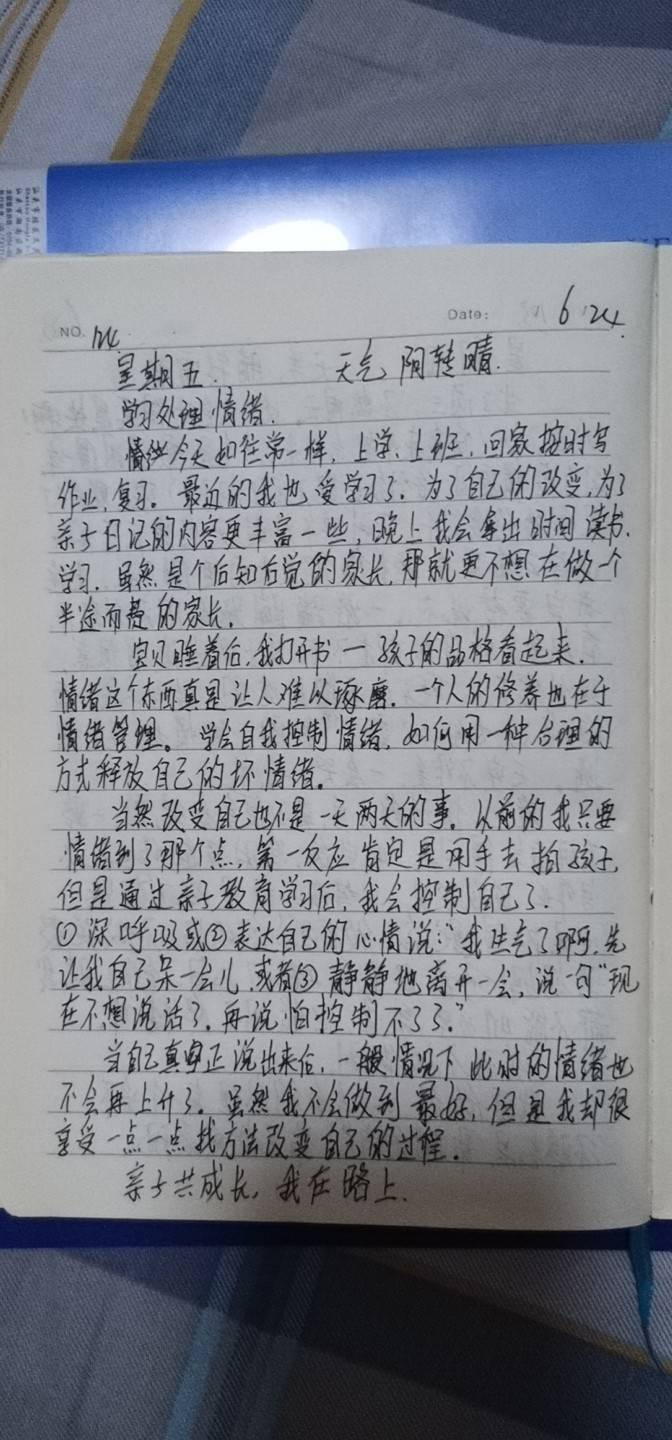 Date: 6.24
NO. 124
星期五. 天气 阴转晴.
学习处理情绪.
今天如往常一样，上学、上班，回家按时写
作业，复习。最近的我也爱学习了。为了自己的改变，为了
亲子日记的内容更丰富一些，晚上我会拿出时间读书，
学习。虽然是个后知后觉的家长，那就更不想在做一个
半途而废的家长。
宝贝睡着后，我打开书一孩子的品格看起来，
情绪这个东西真是让人难以琢磨，一个人的修养也在于
情绪管理。学会自我控制情绪，如何用一种合理的
方式释放自己的坏情绪。
当然改变自己也不是一天两天的事。以前的我只要
情绪到了那个点，第一反应肯定是用手去拍孩子，
但是通过亲子教育学习后，我会控制自己了.
①深呼吸或②表达自己的心情说：“我生气了啊，先
让我自己呆一会儿，或者③静静地离开一会，说一句“现
在不想说话了，再说怕控制不了了.”
当自己真正说出来后，一般情况下此时的情绪也
不会再上升了。虽然我不会做到最好，但是我却很
享受一点一点找方法改变自己的过程.
亲子共成长，我在路上.